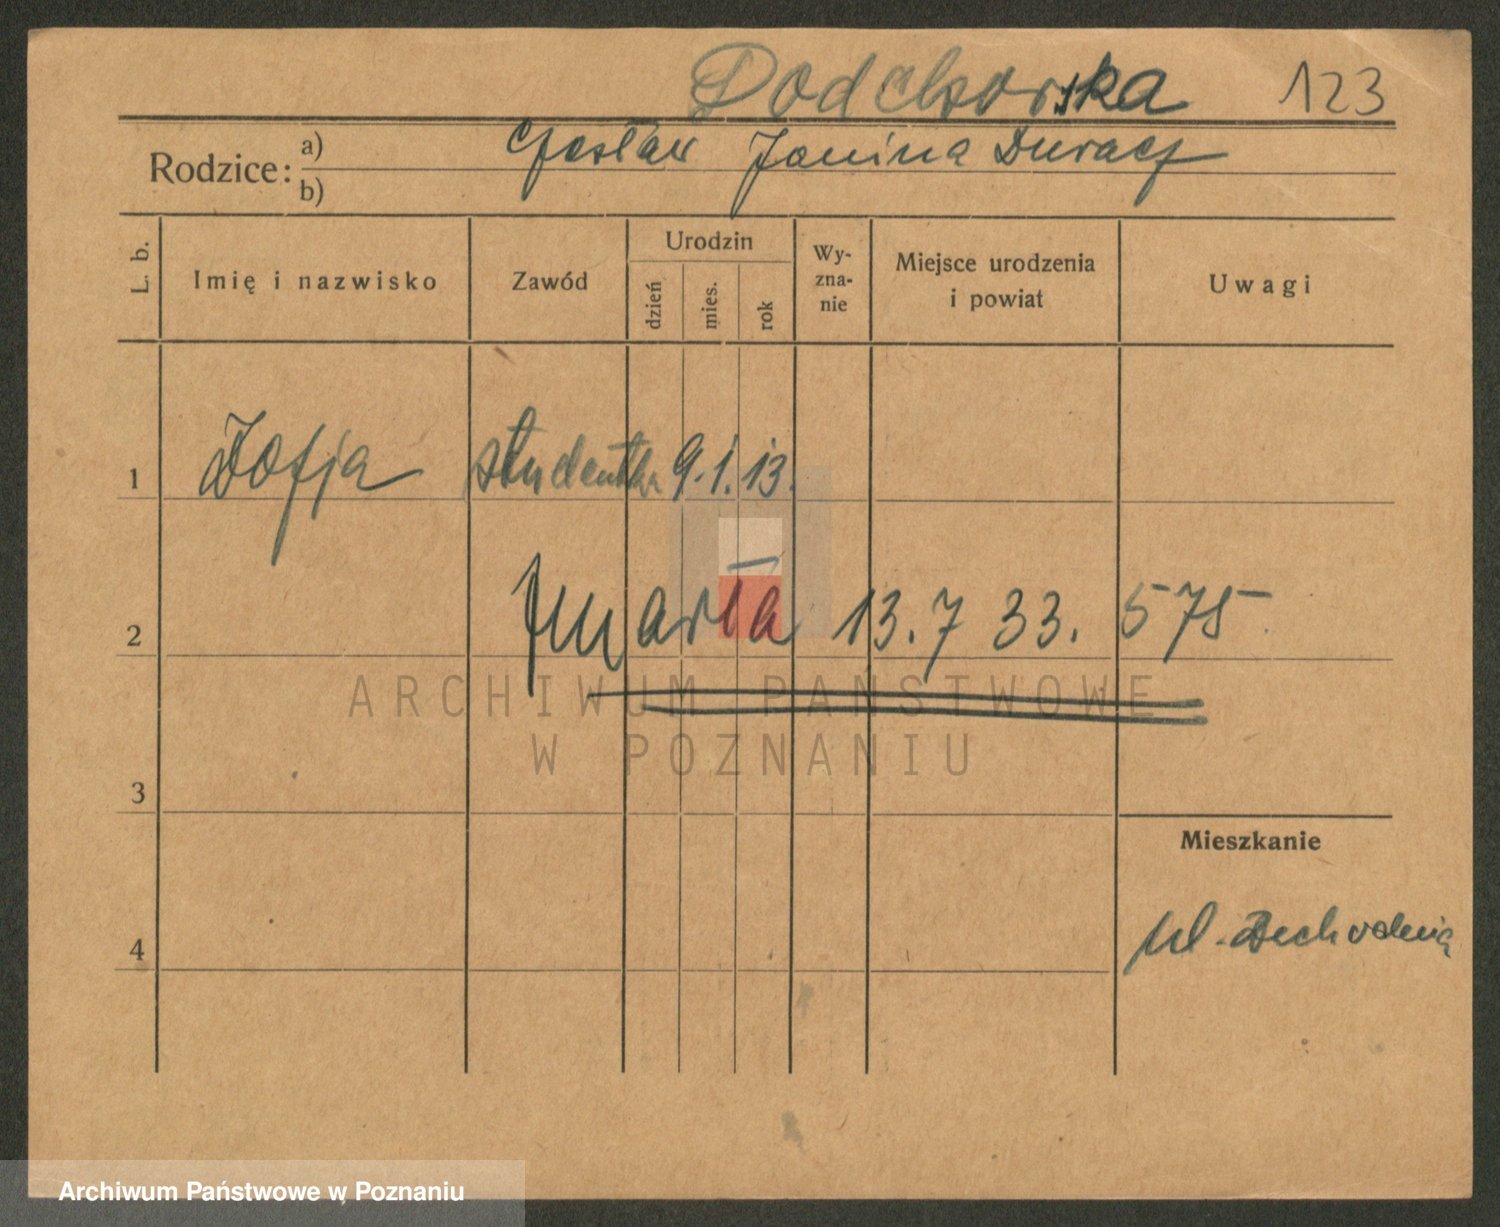 Podchorska 123
Rodzice: a) Czesław Janina Duracz
b)
L. b. Imię i nazwisko Zawód Urodzin dzień mies. rok Wy-zna-nie Miejsce urodzenia i powiat Uwagi
1 Zofja studentka 9. 1. 13.
2 Zmarła 13. 7 33. 575
ARCHIWUM PAŃSTWOWE
W POZNANIU
3
Mieszkanie
4 ul.
Archiwum Państwowe w Poznaniu